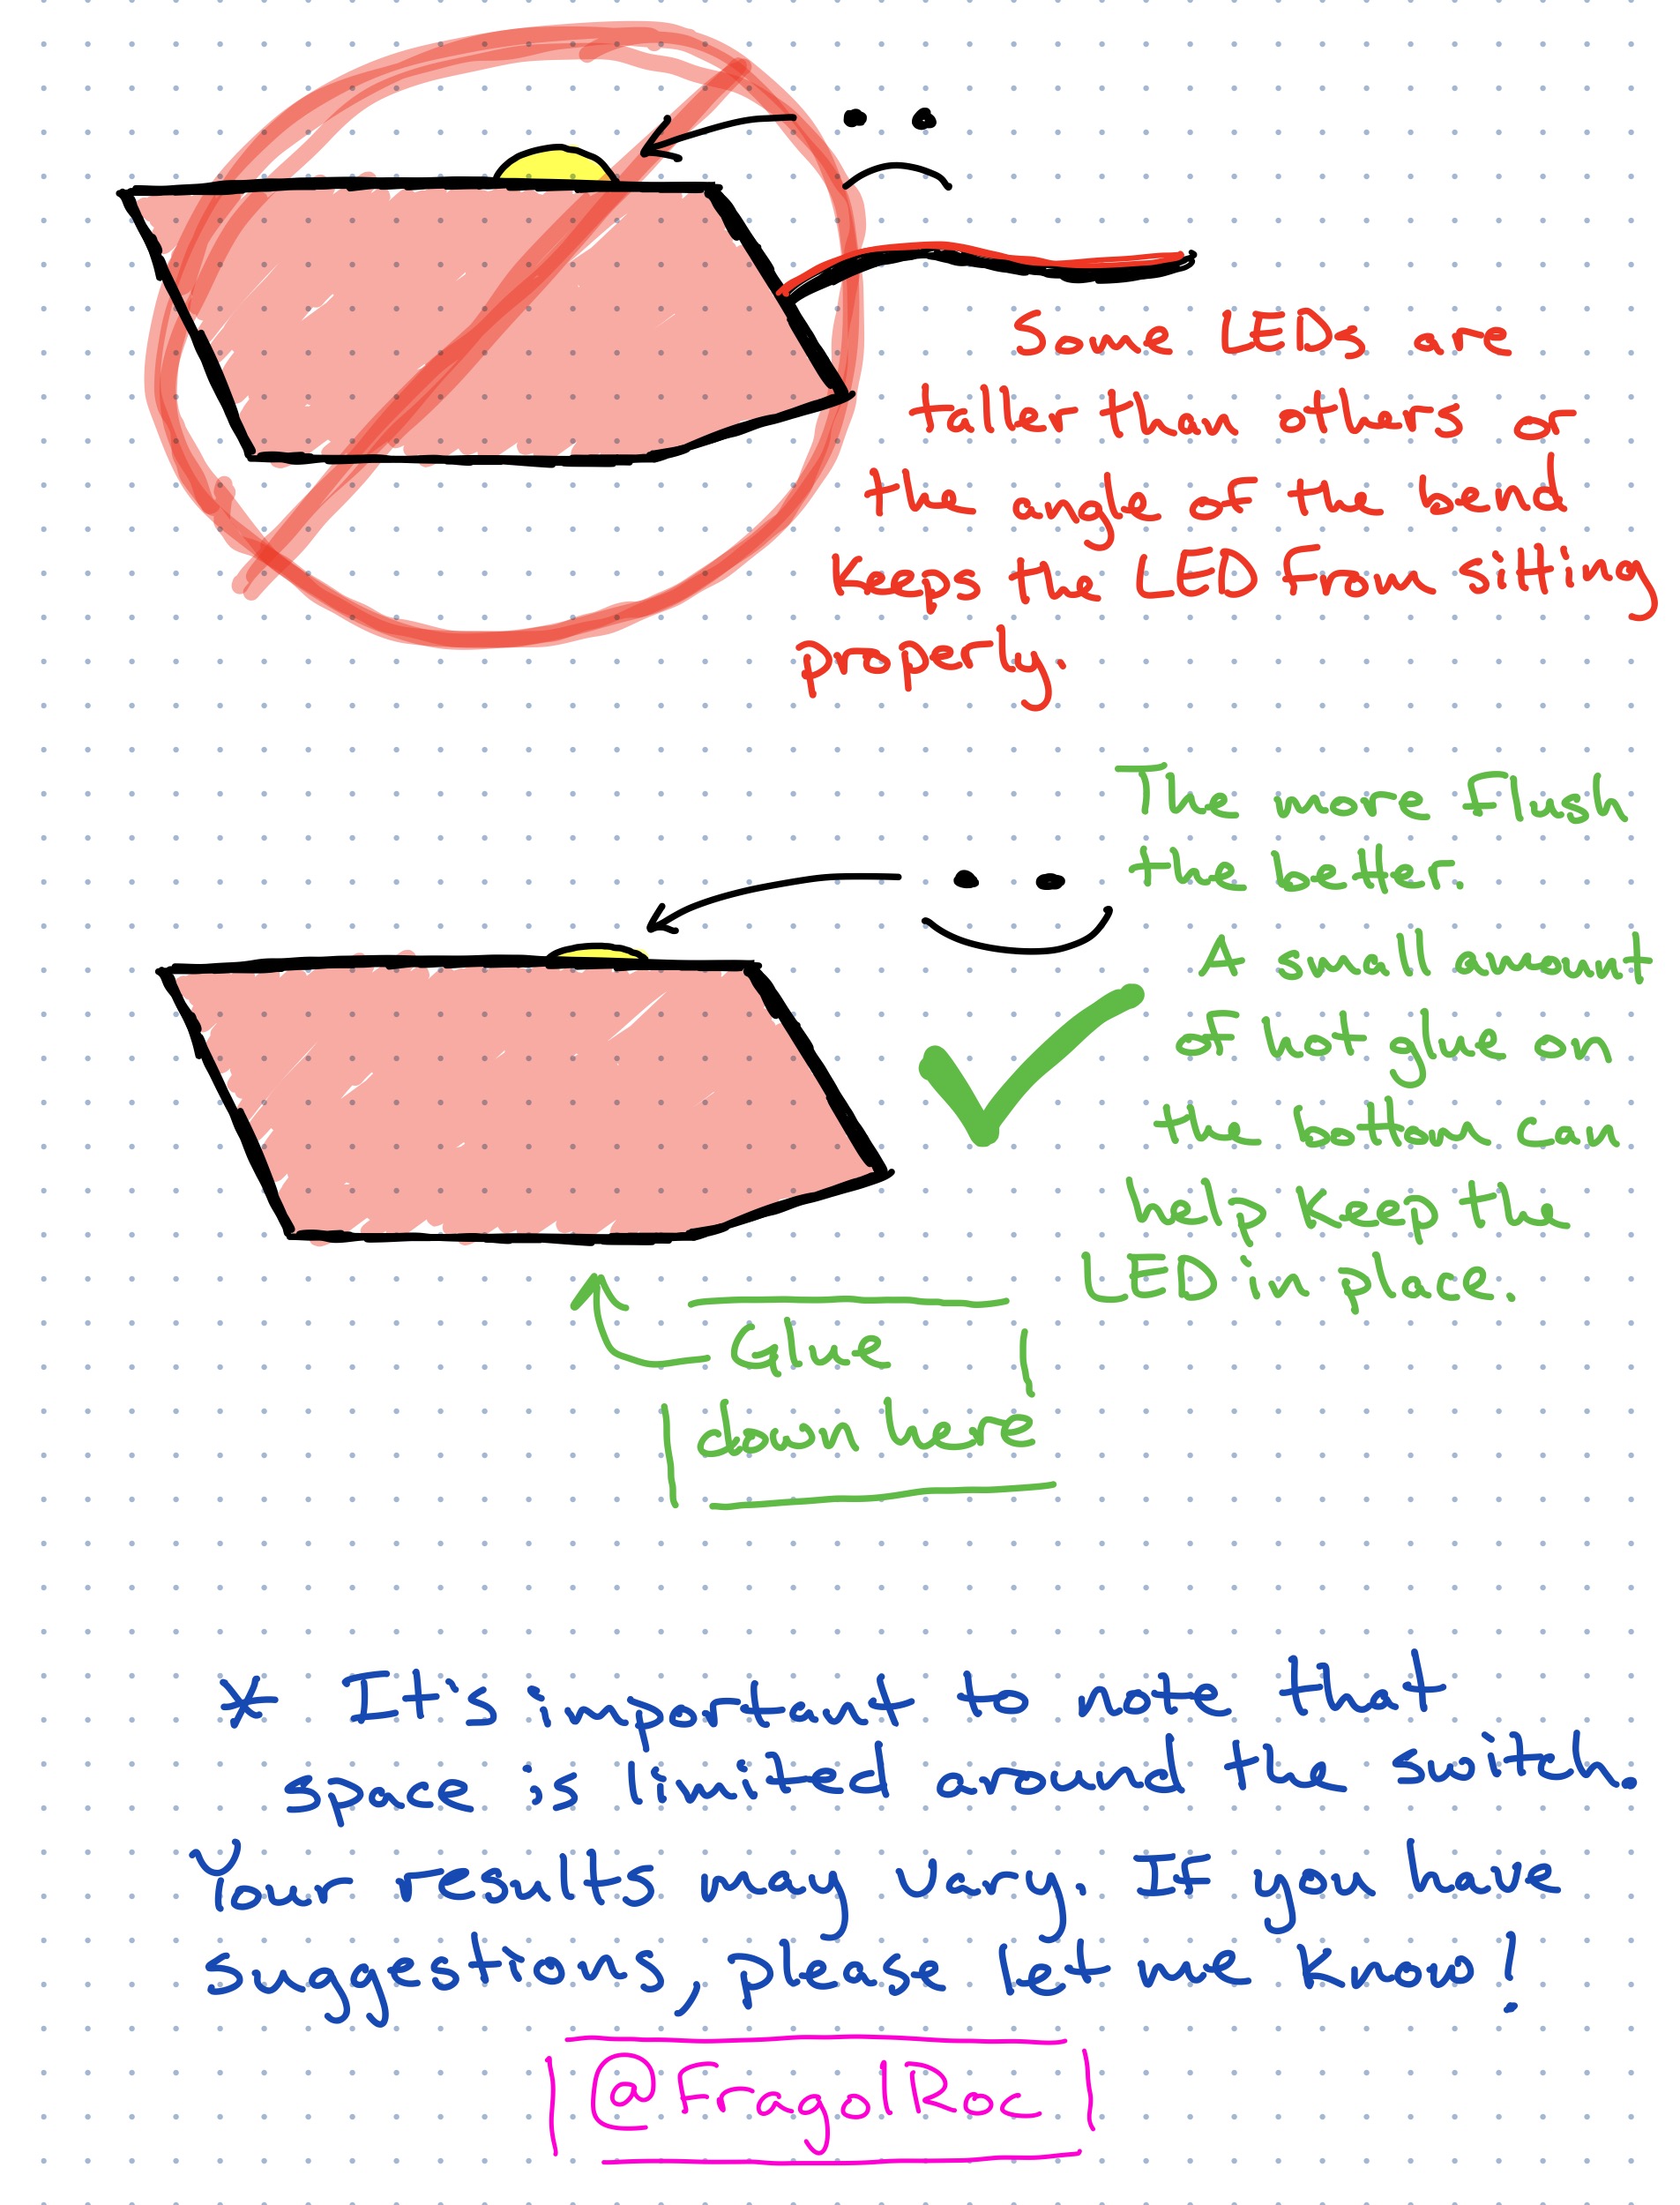 Some LEDs are
taller than others or
the angle of the bend
keeps the LED from sitting
properly.
The more flush
the better.
A small amount
of hot glue on
the bottom can
help keep the
LED in place.
Glue
down here
* It's important to note that
space is limited around the switch.
Your results may vary. If you have
suggestions, please let me know!
@FragolRoc